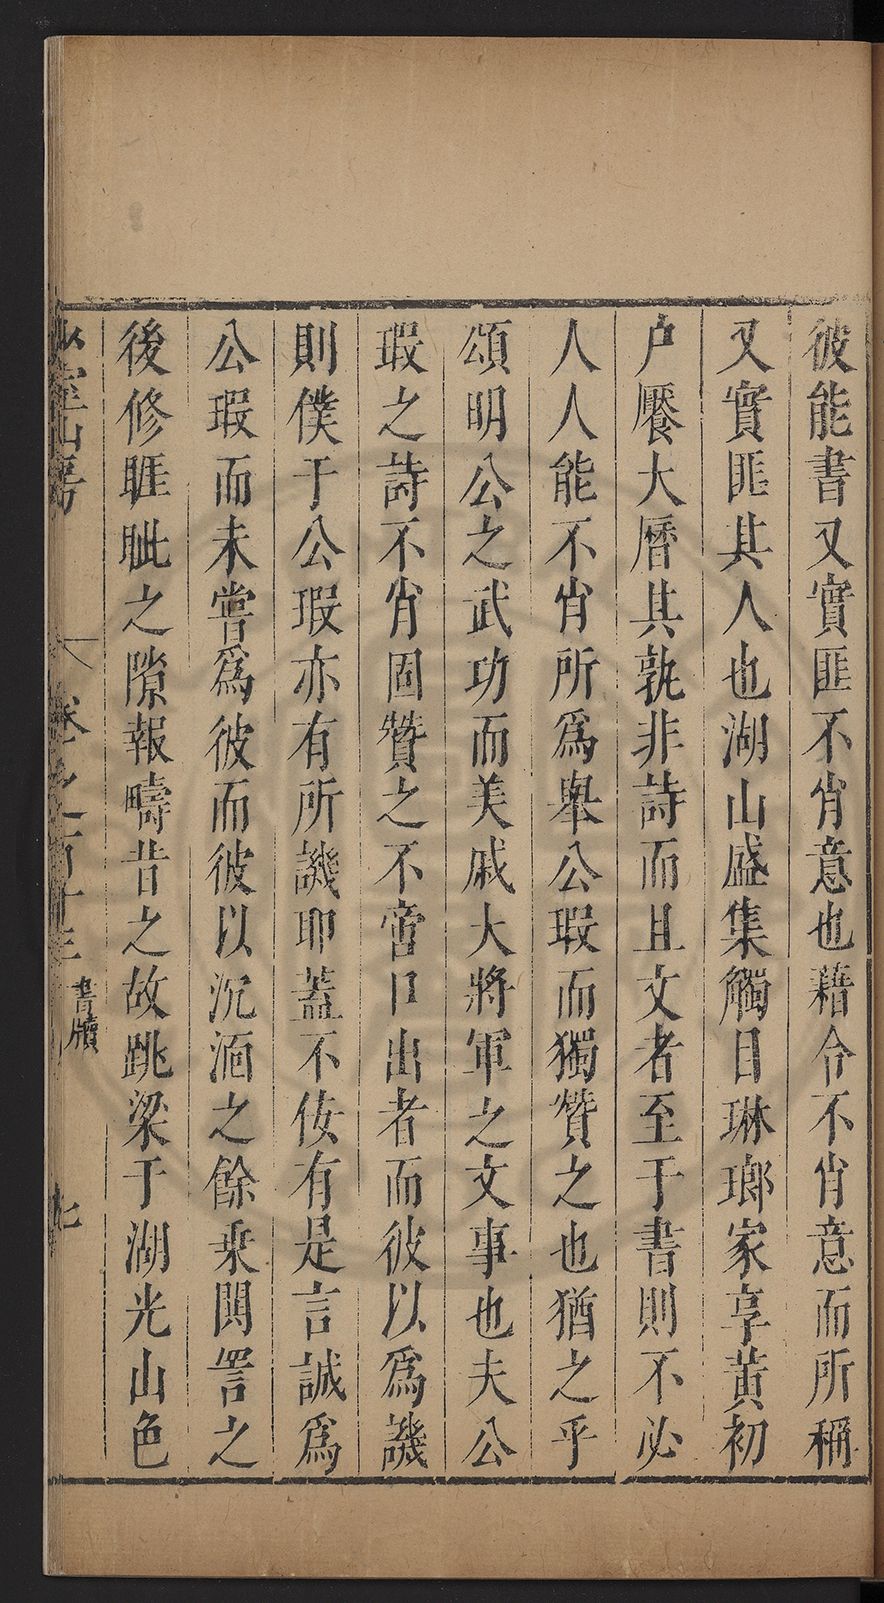 彼能書又實匪不肖意也藉令不肖意而所稱
又實匪其人也湖山盛集觸目琳瑯家享黃初
户饜大曆其孰非詩而且文者至于書則不必
人人能不肖所爲舉公瑕而獨贊之也猶之乎
頌明公之武功而美戚大將軍之文事也夫公
瑕之詩不肖固贊之不啻口出者而彼以爲譏
則僕于公瑕亦有所譏耶蓋不佞有是言誠爲
公瑕而未嘗爲彼而彼以沉湎之餘乗閧詈之
後修睚眦之隙報疇昔之故跳梁于湖光山色
山房
卷之一百十三
書牘
七